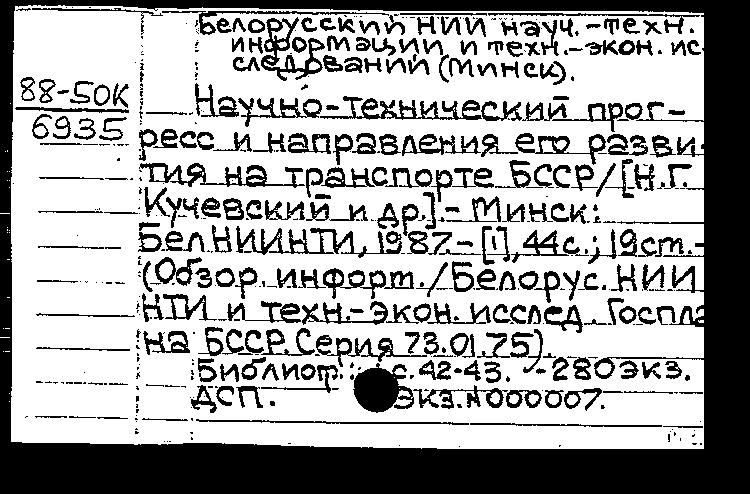 Белорусский НИИ науч.-техн.
информации и техн.-экон. ис
следований (Минск).
88-50К
6935
Научно-технический прог-
ресс и направления его разви-
тия на транспорте БССР/[Н.Г.
Кучевский и др.].- Минск:
БелНИИНТИ, 1987.- [1], 44 с.; 19 см.-
(Обзор. информ./Белорус. НИИ
НТИ и техн.-экон. исслед. Госпла
на БССР. Серия 73.01.75).
Библиогр.: с. 42-43. - 280 экз.
ДСП. Экз. № 000007.